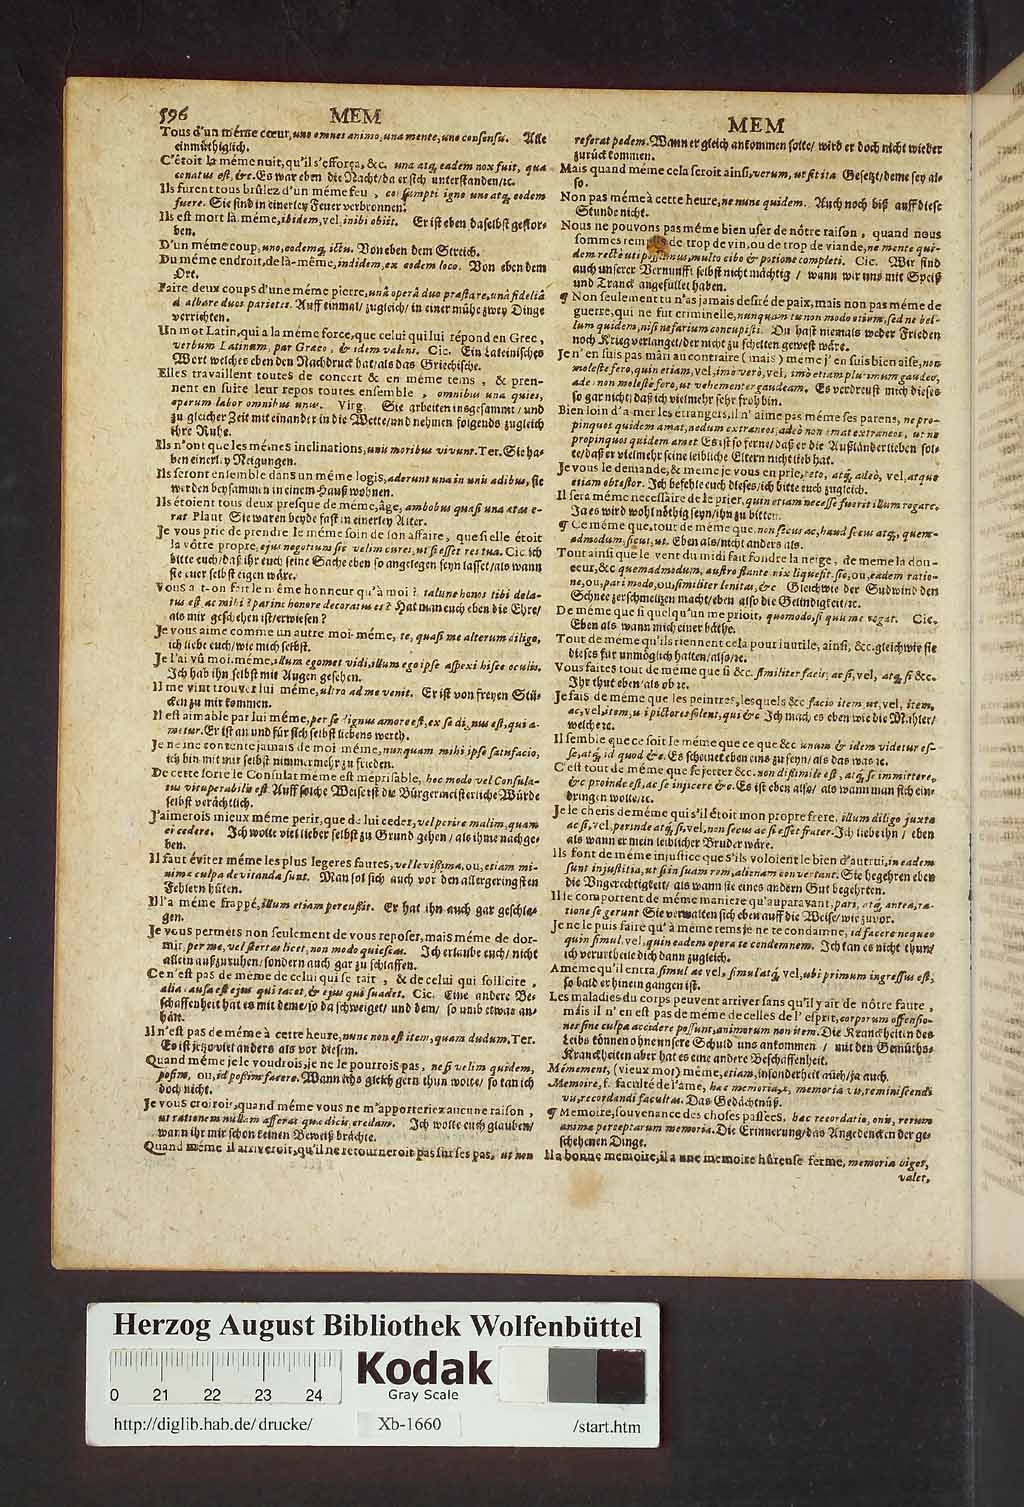 596
MEM
MEM
Tous d'un méme cœur, uno omnes animo, una mente, uno consensu. Alle
einmüthiglich.
C'étoit la méme nuit, qu'il s'efforça, &c. una atq; eadem nox fuit, qua
conatus est, &c. Es war eben die Nacht/ da er sich unterstanden/ ꝛc.
Ils furent tous brûlez d'un méme feu, consumpti igne uno atq; eodem
fuere. Sie sind in einerley Feuer verbronnen.
Ils est mort là méme, ibidem, vel, inibi obiit. Er ist eben daselbst gestor-
ben.
D'un méme coup, uno, eodemq; ictu. Von eben dem Streich.
Du méme endroit, de là-méme, indidem, ex eodem loco. Von eben dem
Ort.
Faire deux coups d'une méme pierre, unâ operâ duo præstare, unâ fideliâ
d albare duos parietes. Auff einmal/ zugleich/ in einer mühe zwey Dinge
verrichten.
Un mot Latin, qui a la méme force, que celui qui lui répond en Grec,
verbum Latinum, par Græco, & idem valens. Cic. Ein Lateinisches
Wort welches eben den Nachdruck hat/ als das Griechische.
Elles travaillent toutes de concert & en méme tems, & pren-
nent en suite leur repos toutes ensemble, omnibus una quies,
operum labor omnibus unus. Virg. Sie arbeiten insgesammt/ und
zu gleicher Zeit mit einander in die Wette/ und nehmen folgends zugleich
ihre Ruhe.
Ils n'ont que les mémes inclinations, unis moribus vivunt. Ter. Sie ha-
ben einerley Neigungen.
Ils seront ensemble dans un méme logis, aderunt una in unis adibus, sie
werden beysammen in einem Hauß wohnen.
Ils étoient tous deux presque de méme, âge, ambobus quasi una ætas e-
rat Plaut Sie waren beyde fast in einerley Alter.
Je vous prie de prendre le méme soin de son affaire, que si elle étoit
la vôtre propre, ejus negotium sic velim cures, ut si esset res tua. Cic. ich
bitte euch/ daß ihr euch seine Sache eben so angelegen seyn lasset/ als wann
sie euer selbst eigen wäre.
Vous a t-on fait le méme honneur qu'à moi? talune honos tibi dela-
tus est ac mihi? parine honore decoratus es? Hat man euch eben die Ehre/
als mir geschehen ist/ erwiesen?
Je vous aime comme un autre moi-méme, te, quasi me alterum diligo,
ich liebe euch/ wie mich selbst.
Je l'ai vû moi-méme, illum egomet vidi, illum ego ipse aspexi hisce oculis.
Ich hab ihn selbst mit Augen gesehen.
Il me vint trouver lui méme, ultro ad me venit. Er ist von freyen Stü-
cken zu mir kommen.
Il est aimable par lui méme, per se dignus amore est, ex se dignus est, qui a-
metur. Er ist an und für sich selbst liebens werth.
Je ne me contente jamais de moi méme, nunquam mihi ipse satisfacio,
ich bin mit mir selbst nimmermehr zu frieden.
De cette sorte le Consulat méme est méprisable, hoc modo vel Consula-
tus vituperabilis est Auff solche Weise ist die Bürgermeisterliche Würde
selbst verächtlich.
J'aimerois mieux méme perir, que de lui ceder, vel perire malim, quam
ei cedere. Ich wolte viel lieber selbst zu Grund gehen/ als ihme nachge-
ben.
Il faut éviter méme les plus legeres fautes, vel levissima, ou, etiam mi-
nime culpa devitanda sunt. Man sol sich auch vor den allergeringsten
Fehlern hüten.
Il l'a méme frappé, illum etiam percussit. Er hat ihn auch gar geschla-
gen.
Je vous permets non seulement de vous reposer, mais méme de dor-
mir, per me, vel stertas licet, non modo quiescas. Ich erlaube euch/ nicht
allein außzuruhen/ sondern auch gar zu schlaffen.
Ce n'est pas de méme de celui qui se tait, & de celui qui sollicite,
alia causa est ejus qui tacet, & ejus qui suadet. Cic. Eine andere Be-
schaffenheit hat es mit deme/ so da schweiget/ und dem/ so umb etwas an-
hält.
Il n'est pas de méme à cette heure, nunc non est item, quam dudum. Ter.
Es ist jetzo viel anders als vor diesem.
Quand méme je le voudrois, je ne le pourrois pas, nesi velim quidem,
possim, ou, id possim facere. Wann ichs gleich gern thun wolte/ so tan ich
doch nicht.
Je vous croirois, quand méme vous ne m'apporteriez aucune raison,
ut rationem nullam afferas quæ dicis, credam. Ich wolte euch glauben/
wann ihr mir schon keinen Beweiß brächte.
Quand méme il arriveroit, qu'il ne retourneroit pas sur ses pas, ut non
referat pedem. Wann er gleich ankommen solte/ wird er doch nicht wieder
zurück kommen.
Mais quand méme cela seroit ainsi, verum, ut sit ita Gesetzt/ deme sey al-
so.
Non pas méme à cette heure, ne nunc quidem. Auch noch biß auff diese
Stunde nicht.
Nous ne pouvons pas méme bien user de nôtre raison, quand nous
sommes de trop de vin, ou de trop de viande, ne mente qui-
dem recte uti possumus, multo cibo & potione completi. Cic. Wir sind
auch unserer Vernunfft selbst nicht mächtig/ wann wir uns mit Speiß
und Tranck angefüllet haben.
¶ Non seulement tu n'as jamais desiré de paix, mais non pas méme de
guerre, qui ne fut criminelle, nunquam tu non modo otium, sed ne bel-
lum quidem, nisi nefarium concupisti. Du hast niemals weder Frieden
noch Krieg verlanget/ der nicht zu schelten gewest wäre.
Je n'en suis pas màri au contraire (mais) méme j'en suis bien aise, non
moleste fero, quin etiam, vel, imò verò, vel, imò etiam plurimum gaudeo,
adeo non moleste fero, ut vehementer gaudeam. Es verdreust mich dieses
so gar nicht/ daß ich vielmehr sehr froh bin.
Bien loin d'aimer les étrangers, il n'aime pas méme ses parens, ne pro-
pinquos quidem amat, nedum extraneos, adeò non amat extraneos, ut ne
propinquos quidem amet Es ist so ferne/ daß er die Außländer lieben sol-
te/ daß er vielmehr seine leibliche Eltern nicht lieb hat.
Je vous le demande, & meme je vous en prie, peto, atq; adeò, vel, atque
etiam obtestor. Ich befehle euch dieses/ ich bitte euch zugleich.
Il sera méme necessaire de le prier, quin etiam necesse fuerit illum rogare.
Ja es wird wohl nöthig seyn/ ihn zu bitten.
¶ Ce méme que, tout de méme que, non secus ac, haud secus atq; quem-
admodum, sicut, ut. Eben als/ nicht anders als.
Tout ainsi que le vent du midi fait fondre la neige, de meme la dou-
ceur, &c quemadmodum, austro flante nix liquescit, sic, ou, eadem ratio-
ne, ou, pari modo, ou, similiter lenitas, &c Gleichwie der Südwind den
Schnee zerschmeltzen macht/ eben also die Gelindigkeit/ ꝛc.
De méme que si quelqu'un me prioit, quomodo, si quis me roget. Cic.
Eben als wann mich einer bäthe.
Tout de méme qu'ils tiennent cela pour inutile, ainsi, &c. gleichwie sie
dieses für unmöglich halten/ also/ ꝛc.
Vous faites tout de méme que si &c. similiter facis, ac si, vel, atq; si &c.
Ihr thut eben/ als ob ꝛc.
Je fais de méme que les peintres, lesquels &c facio item ut, vel, item,
ac, vel, item, uti pictores solent, qui &c Ich mach es eben wie die Mahler/
welche ꝛc.
Il semble que ce soit le méme que ce que &c unum & idem videtur es-
se, atq; id quod &c. Es scheinet eben eins zu seyn/ als das was ꝛc.
C'est tout de méme que se jetter &c. non dissimile est, atq; se immittere,
& proinde est, ac se injicere &c. Es ist eben also/ als wann man sich ein-
dringen wolle/ ꝛc.
Je le cheris de méme que s'il étoit mon propre frere, illum diligo juxta
ac si, vel, perinde atq; si, vel, non secus ac si esset frater. Ich liebe ihn/ eben
als wann er mein leiblicher Bruder wäre.
Ils font de méme injustice que s'ils voloient le bien d'autrui, in eadem
sunt injustitia, ut si in suam rem, alienam convertant. Sie begehen eben
die Ungerechtigkeit/ als wann sie eines andern Gut begehrten.
Il se comportent de méme maniere qu'auparavant, pari, atq; antea, ra-
tione se gerunt Sie verwalten sich eben auff die Weise/ wie zuvor.
Je ne le puis faire qu'à méme tems je ne te condamne, id facere nequeo
quin simul, vel, quin eadem opera te condemnem. Ich tan es nicht thun/
ich verurtheile dich dann zugleich.
A meme qu'il entra, simul ac vel, simul atq; vel, ubi primum ingressus est,
so bald er hinein gangen ist.
Les maladies du corps peuvent arriver sans qu'il y ait de nôtre faute,
mais il n'en est pas de méme de celles de l'esprit, corporum offensio-
nes sine culpa accidere possunt, animorum non item. Die Kranckheiten des
Leibs können ohne unsere Schuld uns ankommen/ mit den Gemüths-
Kranckheiten aber hat es eine andere Beschaffenheit.
Mémement, (vieux mot) méme, etiam, insonderheit auch/ ja auch.
Memoire, f. faculté de l'ame, hæc memoria, æ, memoria vis, reminiscendi
vis, recordandi facultas. Das Gedächtnüß.
¶ Memoire, souvenance des choses passées, hæc recordatio, onis, rerum
anima perceptarum memoria. Die Erinnerung/ das Angedencken der ge-
schehenen Dinge.
Il a bonne memoire, il a une memoire hûreuse ferme, memoria viget,
valet,
Herzog August Bibliothek Wolfenbüttel
Kodak
Gray Scale
0 21 22 23 24
http://diglib.hab.de/drucke/ Xb-1660 /start.htm